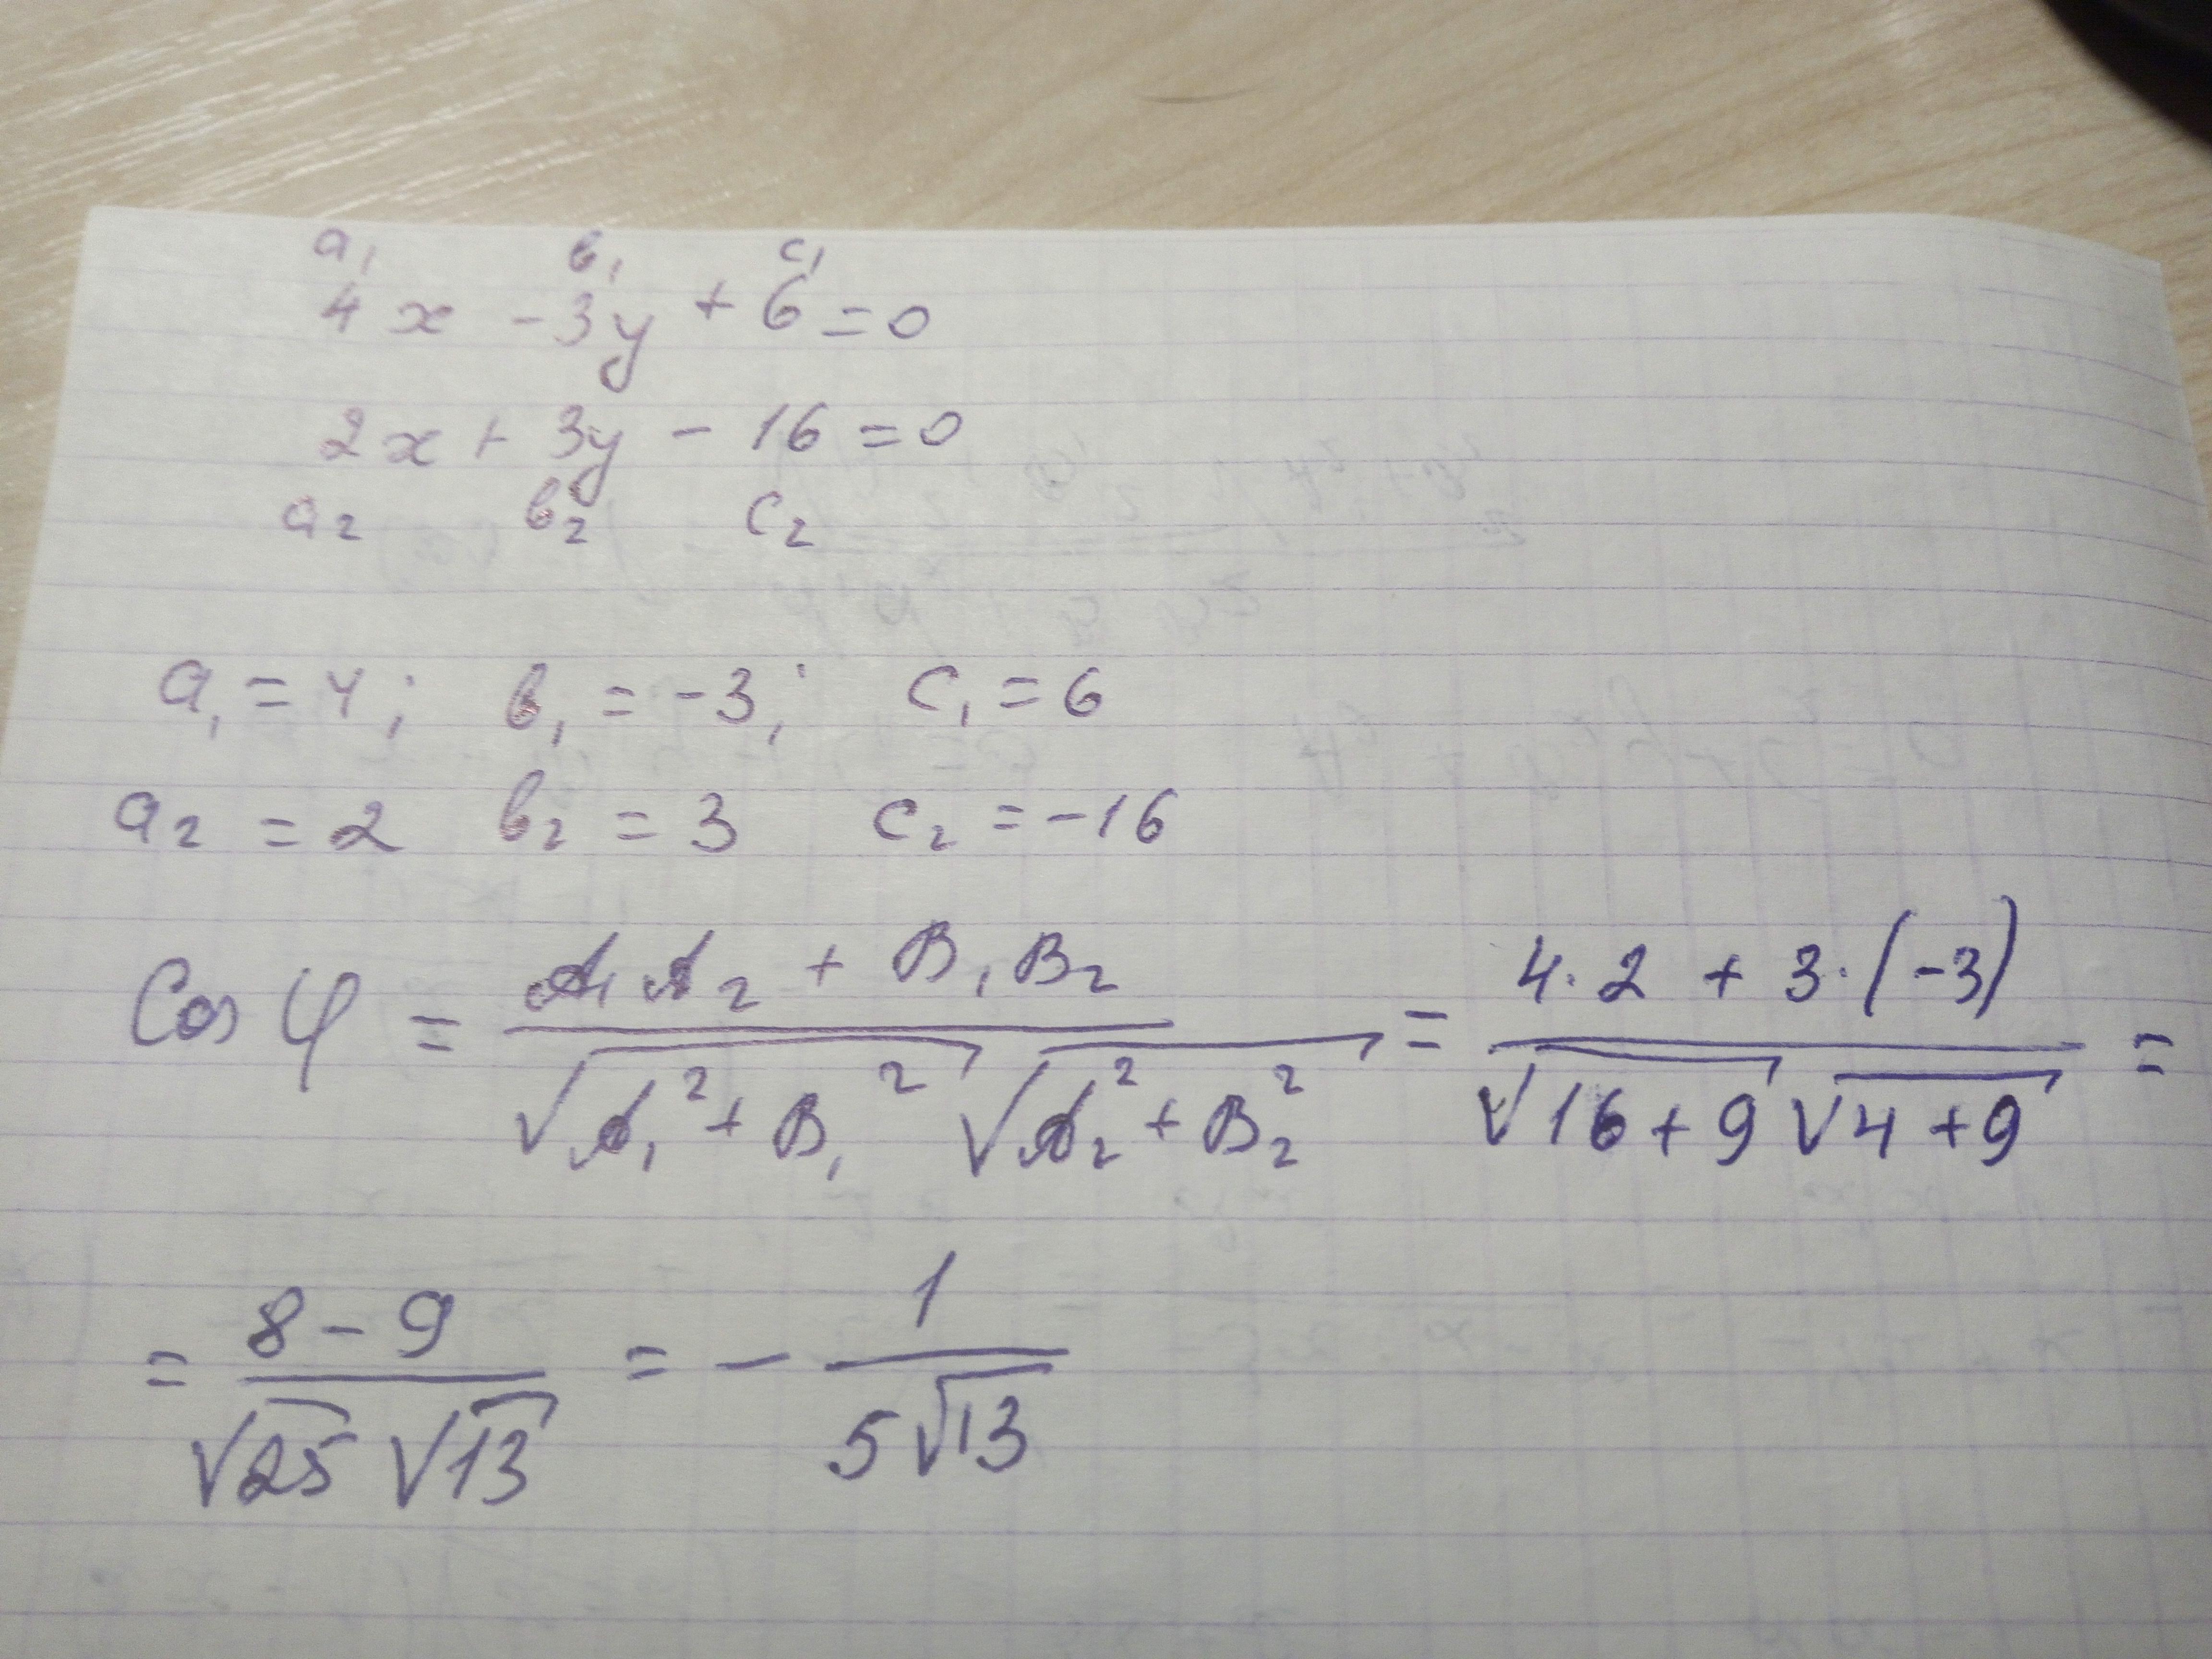 a₁ в₁ c₁
4x - 3y + 6 = 0
2x + 3y - 16 = 0
a₂ в₂ c₂
a₁ = 4; в₁ = -3; c₁ = 6
a₂ = 2 в₂ = 3 c₂ = -16
Cos φ = (A₁A₂ + B₁B₂) / (√(A₁² + B₁²) √(A₂² + B₂²)) = (4·2 + 3·(-3)) / (√(16+9) √(4+9)) =
= (8 - 9) / (√25 √13) = - 1 / (5√13)